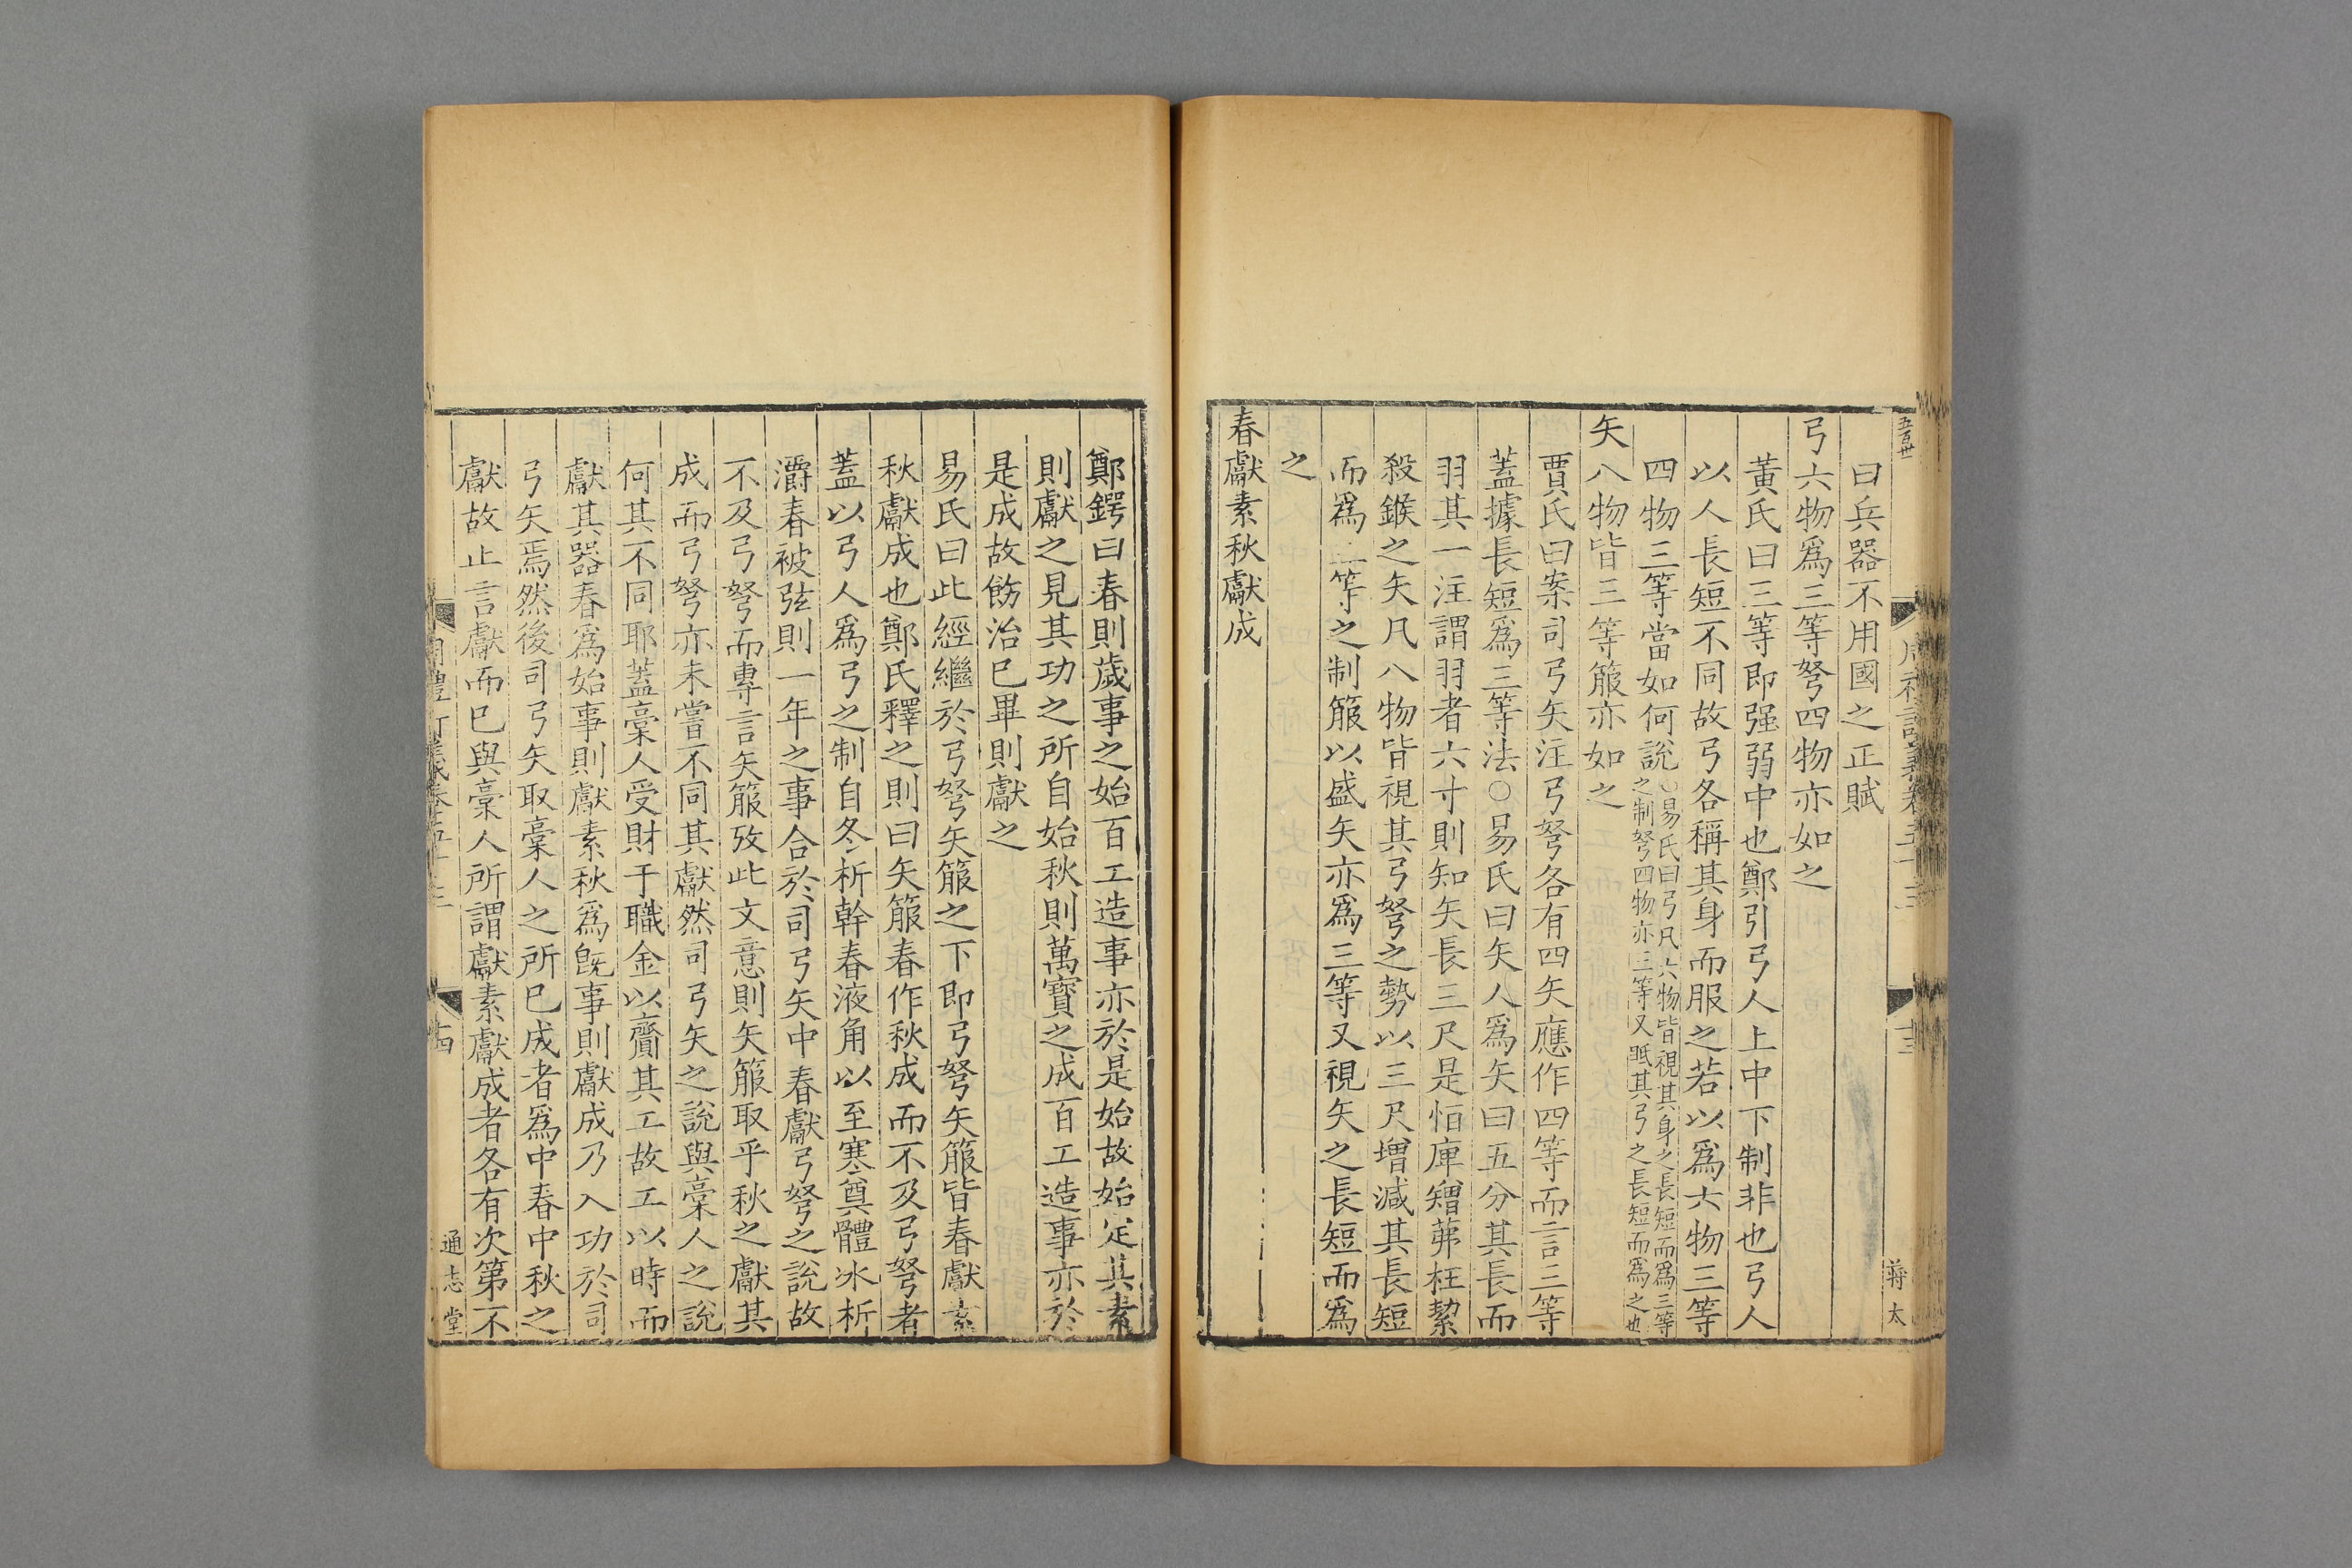 曰兵器不用國之正賦
弓六物爲三等弩四物亦如之
黃氏曰三等即强弱中也鄭引弓人上中下制非也弓人
以人長短不同故弓各稱其身而服之若以爲六物三等
四物三等當如何說○易氏曰弓凡六物皆視其身之長短而爲三等
之制弩四物亦三等又眡其弓之長短而爲之也
矢八物皆三等箙亦如之
賈氏曰案司弓矢注弓弩各有四矢應作四等而言三等
蓋據長短爲三等法○易氏曰矢人爲矢曰五分其長而
羽其一注謂羽者六寸則知矢長三尺是恒庳矰茀枉絜
殺鍭之矢凡八物皆視其弓弩之勢以三尺增減其長短
而爲三等之制箙以盛矢亦爲三等又視矢之長短而爲
之
春獻素秋獻成
蔣太
鄭鍔曰春則歲事之始百工造事亦於是始故始定其素
則獻之見其功之所自始秋則萬寶之成百工造事亦於
是成故飭治巳畢則獻之
易氏曰此經繼於弓弩矢箙之下即弓弩矢箙皆春獻素
秋獻成也鄭氏釋之則曰矢箙春作秋成而不及弓弩者
蓋以弓人爲弓之制自冬析幹春液角以至寒奠體冰析
灂春被弦則一年之事合於司弓矢中春獻弓弩之說故
不及弓弩而專言矢箙攷此文意則矢箙取乎秋之獻其
成而弓弩亦未嘗不同其獻然司弓矢之說與稾人之說
何其不同耶蓋稾人受財于職金以齎其工故工以時而
獻其器春爲始事則獻素秋爲旣事則獻成乃入功於司
弓矢焉然後司弓矢取稾人之所巳成者爲中春中秋之
獻故止言獻而巳與稾人所謂獻素獻成者各有次第不
十四
通志堂